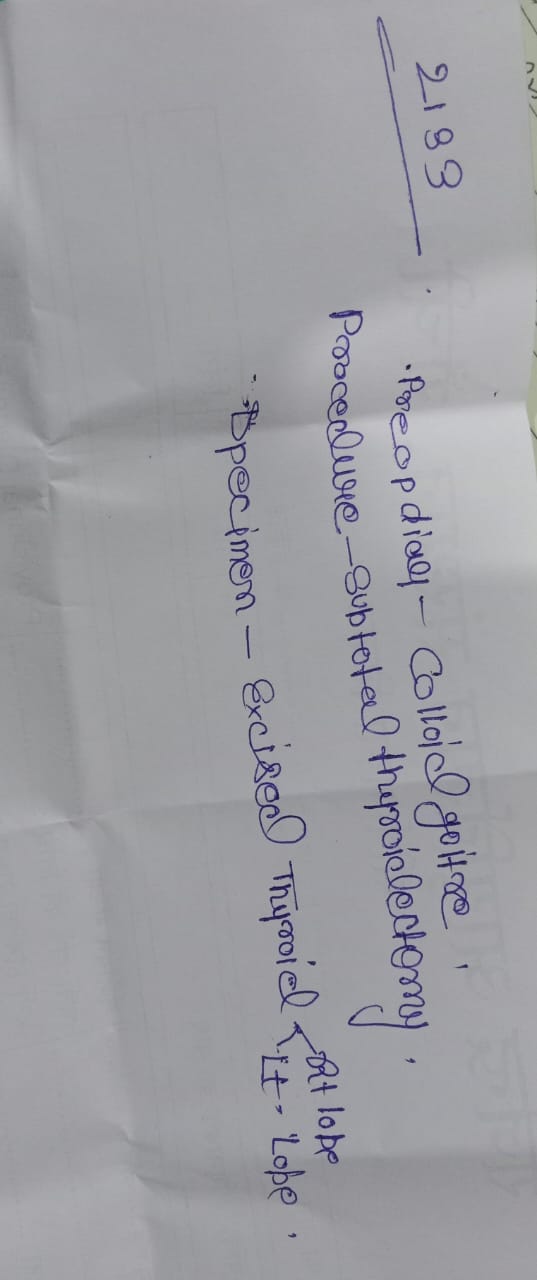 2193
Preop diag - Colloid goitre,
Procedure - Subtotal thyroidectomy.
Specimen - Excised Thyroid < Rt lobe
Lt. Lobe.